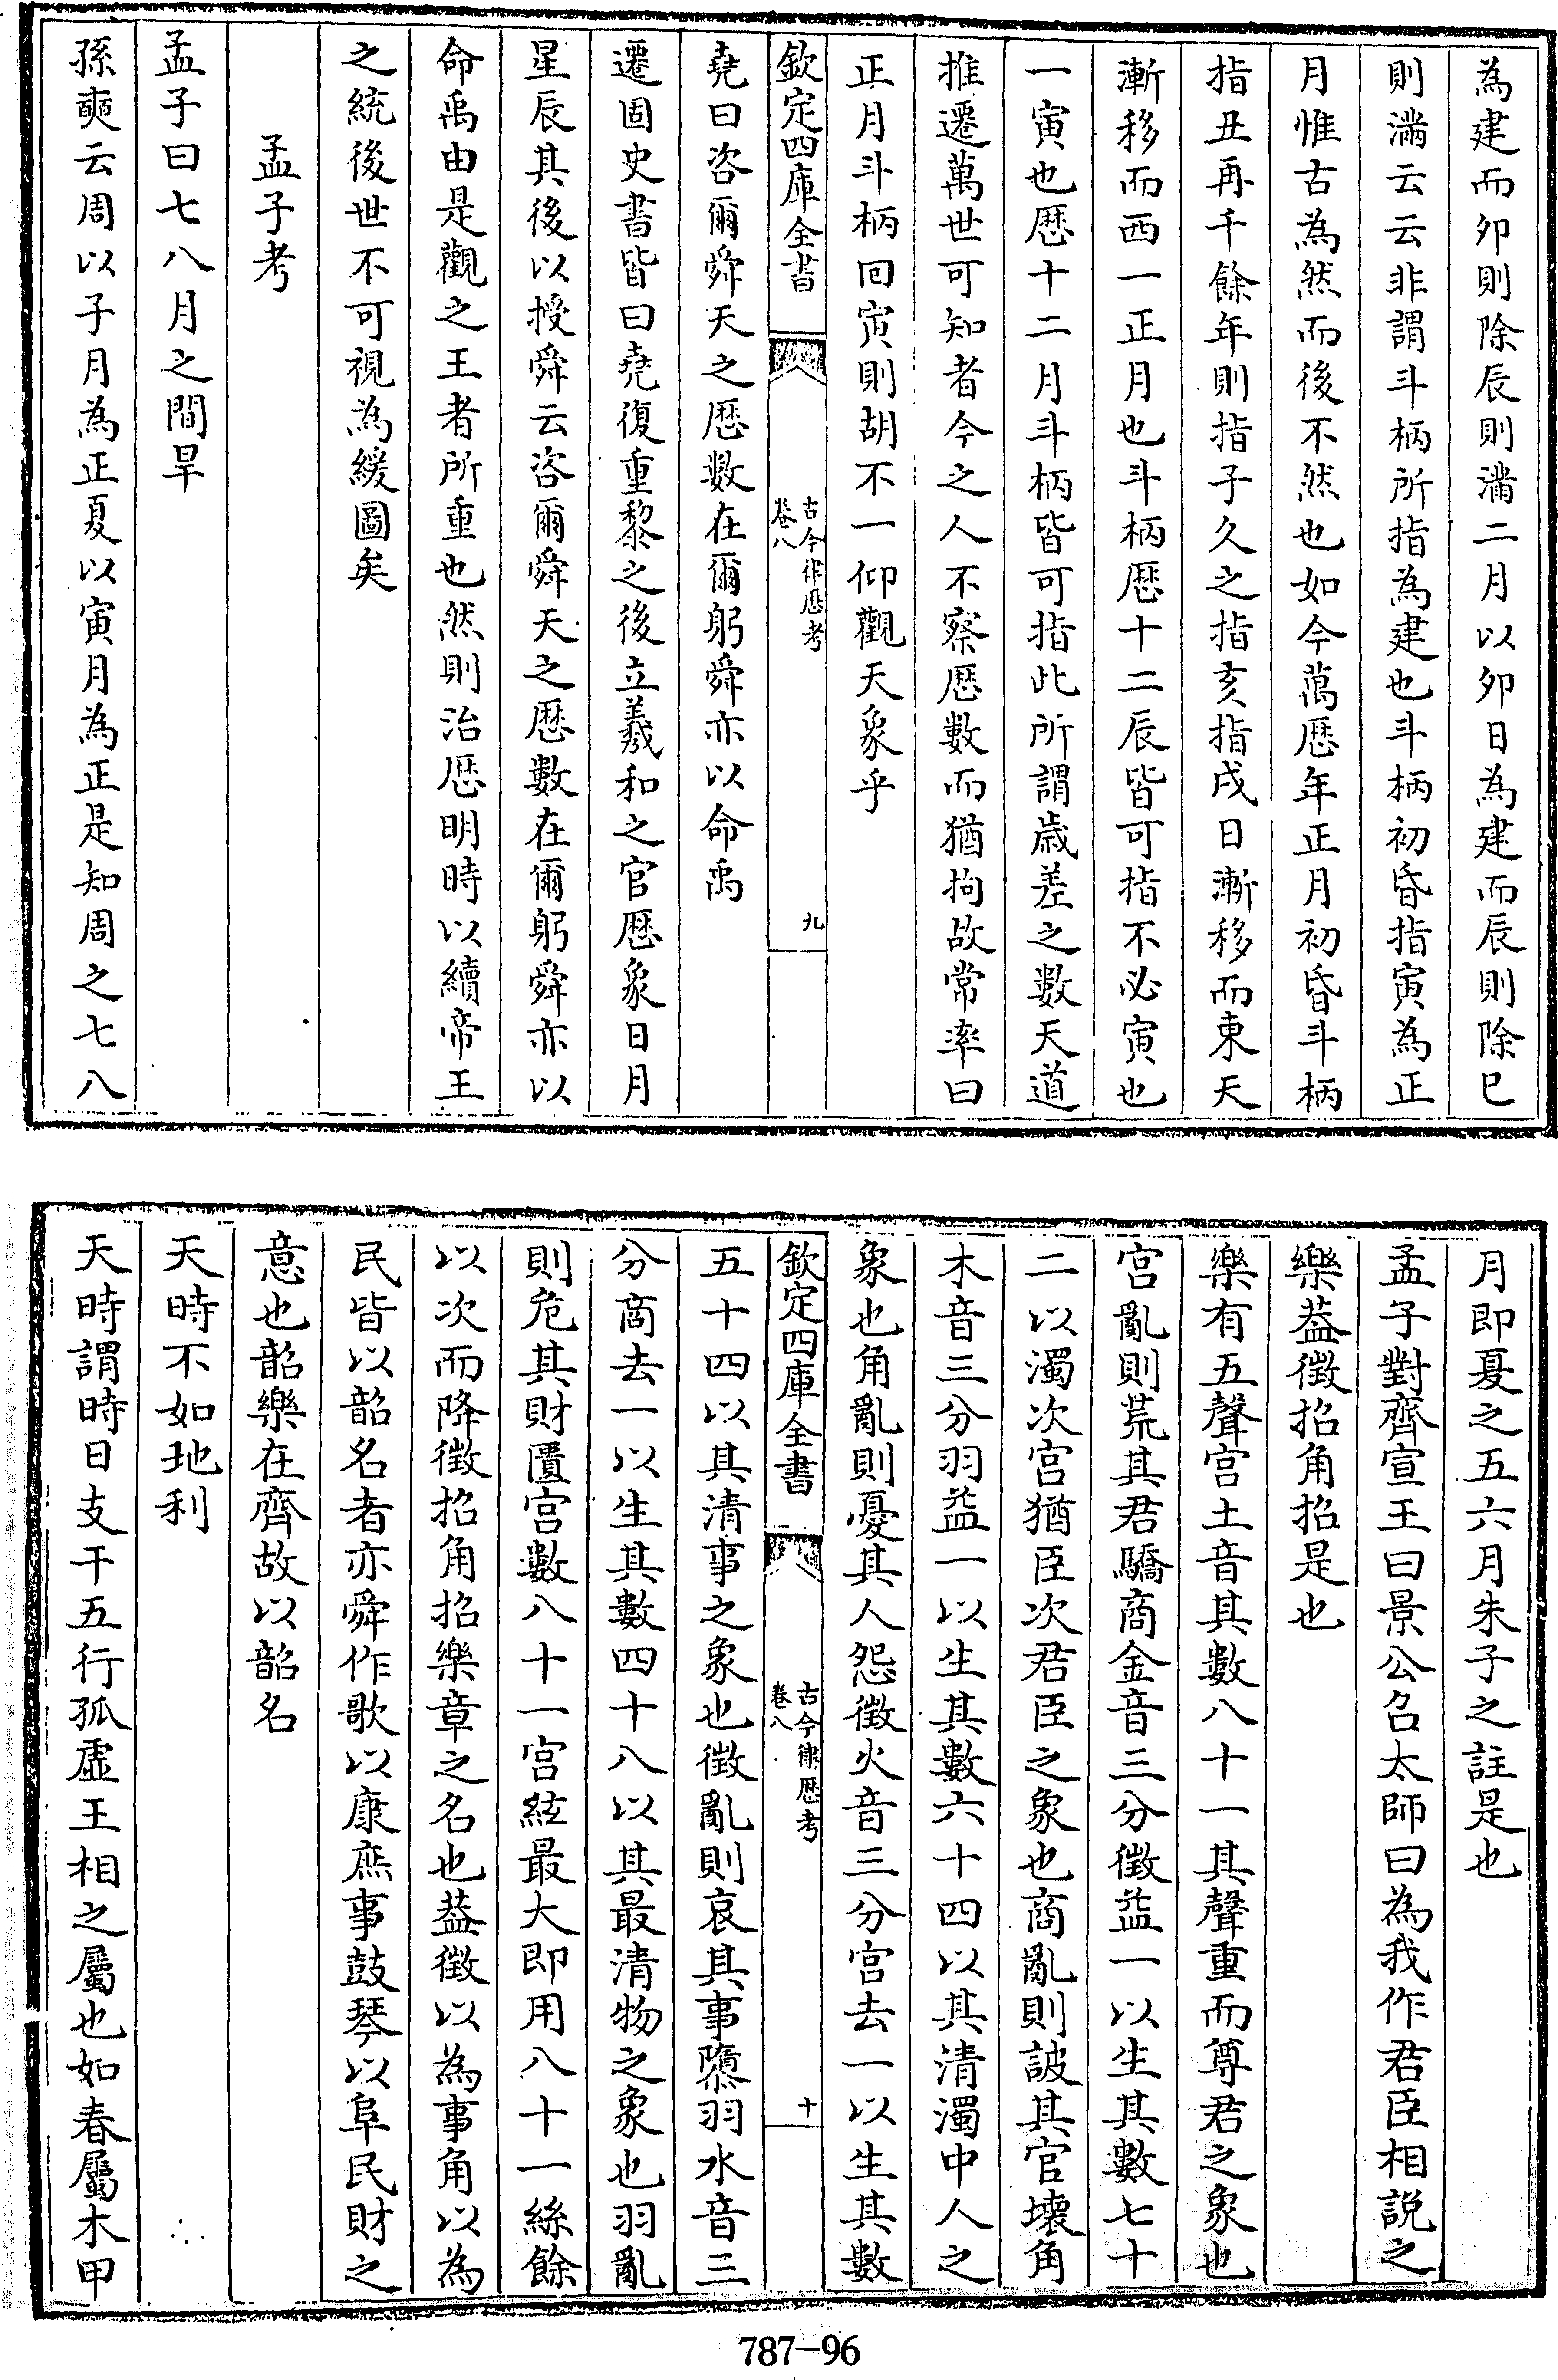 為建而卯則除辰則滿二月以卯日為建而辰則除巳
則滿云云非謂斗柄所指為建也斗柄初昏指寅為正
月惟古為然而後不然也如今萬厯年正月初昏斗柄
指丑再千餘年則指子久之指亥指戌日漸移而東天
漸移而西一正月也斗柄厯十二辰皆可指不必寅也
一寅也厯十二月斗柄皆可指此所謂歲差之數天道
推遷萬世可知者今之人不察厯數而猶拘故常率曰
正月斗柄回寅則胡不一仰觀天象乎
欽定四庫全書
古今律厯考
卷八
九
堯曰咨爾舜天之厯數在爾躬舜亦以命禹
遷固史書皆曰堯復重黎之後立羲和之官厯象日月
星辰其後以授舜云咨爾舜天之厯數在爾躬舜亦以
命禹由是觀之王者所重也然則治厯明時以續帝王
之統後世不可視為緩圖矣
孟子考
孟子曰七八月之間旱
孫奭云周以子月為正夏以寅月為正是知周之七八
月即夏之五六月朱子之註是也
孟子對齊宣王曰景公召太師曰為我作君臣相説之
樂葢徵招角招是也
樂有五聲宫土音其數八十一其聲重而尊君之象也
宫亂則荒其君驕商金音三分徵益一以生其數七十
二以濁次宫猶臣次君臣之象也商亂則詖其官壞角
木音三分羽益一以生其數六十四以其清濁中人之
象也角亂則憂其人怨徵火音三分宫去一以生其數
欽定四庫全書
古今律厯考
卷八
十
五十四以其清事之象也徵亂則哀其事隳羽水音三
分商去一以生其數四十八以其最清物之象也羽亂
則危其財匱宫數八十一宫絃最大即用八十一絲餘
以次而降徵招角招樂章之名也葢徵以為事角以為
民皆以韶名者亦舜作歌以康庶事鼓琴以阜民財之
意也韶樂在齊故以韶名
天時不如地利
天時謂時日支干五行孤虛王相之屬也如春屬木甲
787-96